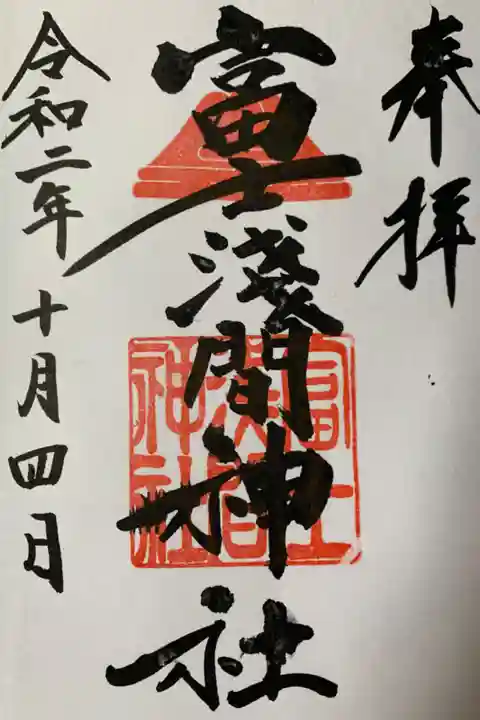 奉拝
富士淺間神社
令和二年十月四日
富士
浅間
神社